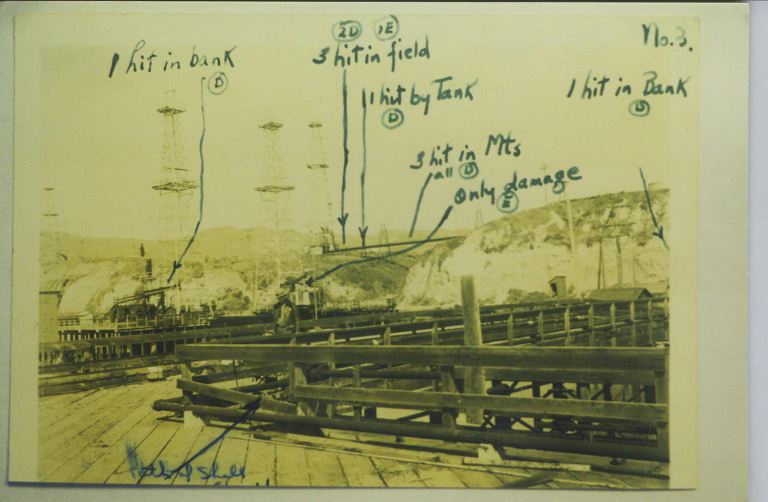 No. 3.
1 hit in bank
D
2D 1E
3 hit in field
1 hit by Tank
D
3 hit in Mts
all D
Only damage
E
1 hit in Bank
D
Shell